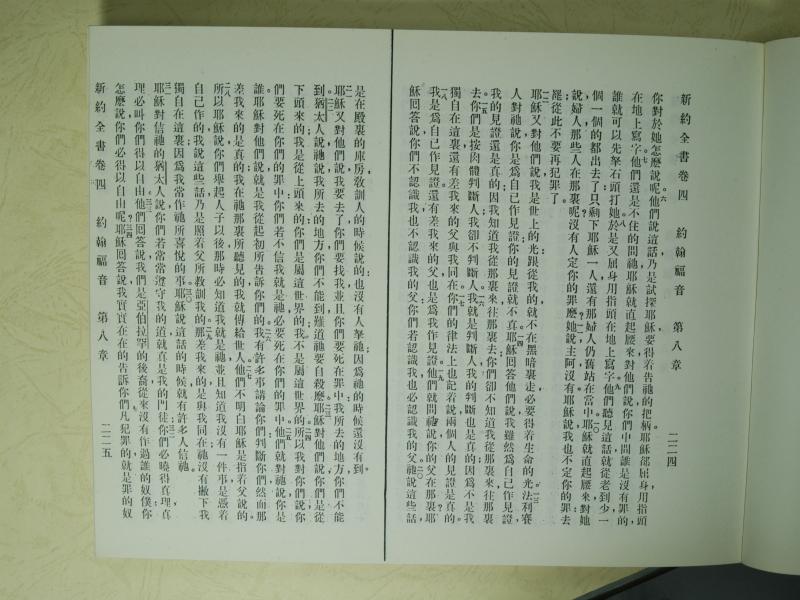 新約全書卷四 約翰福音 第八章 二二四
你對於她怎麼說呢他們說這話乃是試探耶穌要得着告祂的把柄耶穌卻屈身用指頭
在地上寫字他們還是不住的問祂耶穌就直起腰來對他們說你們中間誰是沒有罪的
誰就可以先拏石頭打她於是又屈身用指頭在地上寫字他們聽見這話就從老到少一
個一個的都出去了只剩下耶穌一人還有那婦人仍舊站在當中耶穌就直起腰來對她
說婦人那些人在那裏呢沒有人定你的罪麼她說主阿沒有耶穌說我也不定你的罪去
罷從此不要再犯罪了
耶穌又對他們說我是世上的光跟從我的就不在黑暗裏走必要得着生命的光法利賽
人對祂說你是爲自己作見證你的見證就不真耶穌回答他們說我雖然爲自己作見證
我的見證還是真的因我知道我從那裏來往那裏去你們卻不知道我從那裏來往那裏
去你們是按肉體判斷人我卻不判斷人我就是判斷人我的判斷也是真的因爲不是我
獨自在這裏還有差我來的父與我同在你們的律法上也記着說兩個人的見證是真的
我是爲自己作見證還有差我來的父也是爲我作見證他們就問祂說你的父在那裏耶
穌回答說你們不認識我也不認識我的父你們若認識我也必認識我的父祂說這些話
是在殿裏的庫房敎訓人的時候說的也沒有人拏祂因爲祂的時候還沒有到
耶穌又對他們說我要去了你們要找我並且你們要死在罪中我所去的地方你們不能
到猶太人說祂說我所去的地方你們不能到難道祂要自殺麼耶穌對他們說你們是從
下頭來的我是從上頭來的你們是屬這世界的我不是屬這世界的所以我對你們說你
們要死在你們的罪中你們若不信我就是祂必要死在你們的罪中他們就對祂說你是
誰耶穌對他們說就是我從起初所告訴你們的我有許多事講論你們判斷你們然而那
差我來的是真的我在祂那裏所聽見的我就傳給世人他們不明白耶穌是指着父說的
所以耶穌說你們舉起人子以後那時必知道我就是祂並且知道我沒有一件事是憑着
自己作的我說這些話乃是照着父所敎訓我的那差我來的是與我同在祂沒有撇下我
獨自在這裏因爲我常作祂所喜悅的事耶穌說這話的時候就有許多人信祂
耶穌對信祂的猶太人說你們若常常遵守我的道就真是我的門徒你們必曉得真理真
理必叫你們得以自由他們回答說我們是亞伯拉罕的後裔從來沒有作過誰的奴僕你
怎麼說你們必得以自由呢耶穌回答說我實實在在的告訴你們凡犯罪的就是罪的奴
新約全書卷四 約翰福音 第八章 二二五